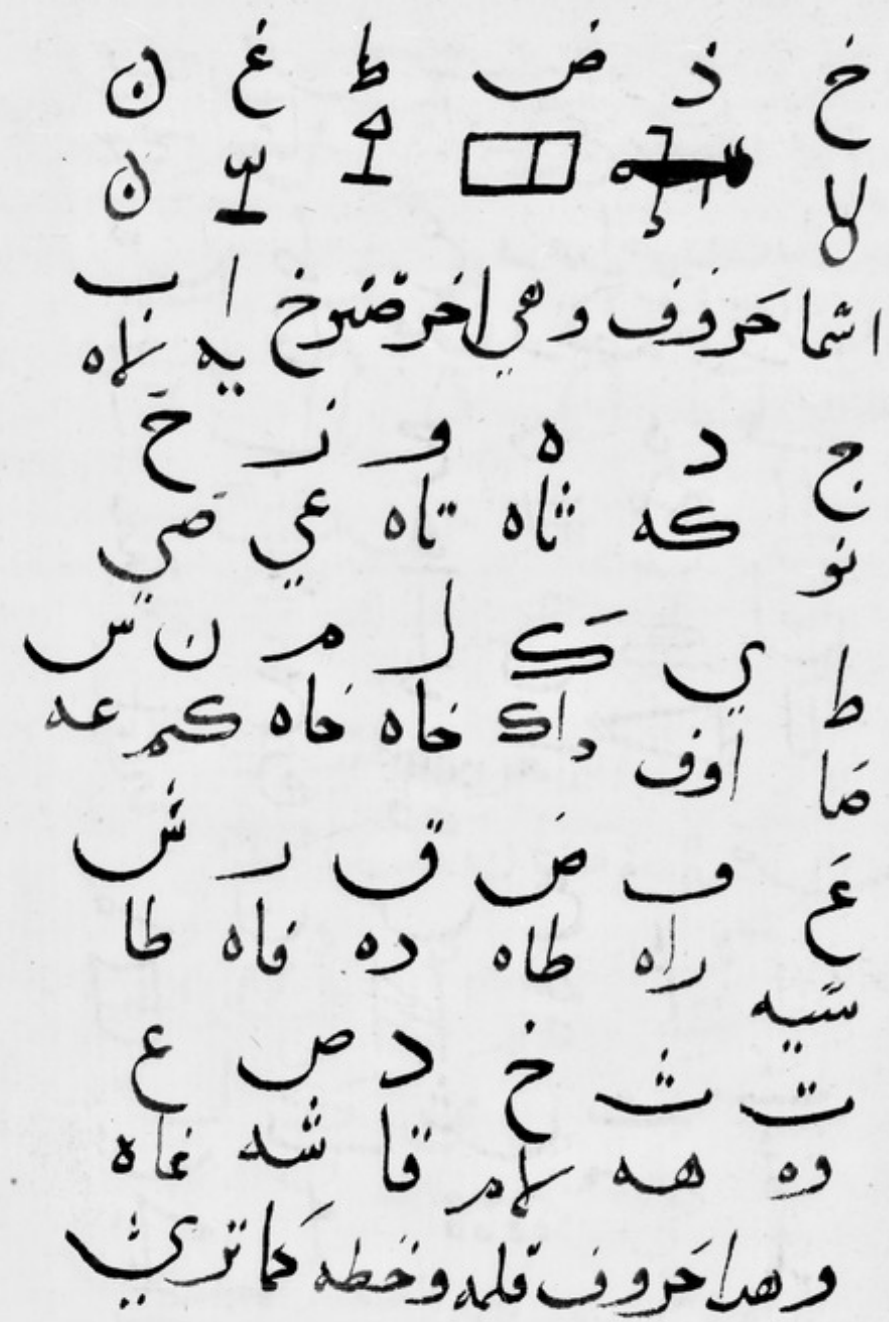 خ ذ ض ظ غ ن
لا ن
اسما حروف وهي اخرضوخ ا ب
يه لاه
ج د ه و ز ح
نو كه ثاه تاه عي صي
ط ي ك ل م ن س
ضا اوف داك خاه خاه كم عه
ع ف ض ق ر ش
سيه راه طاه ده فاه طا
ت ث خ د ص ع
وه هه لام قا شه غاه
وهدا حروف قلمه وخطه كما تري